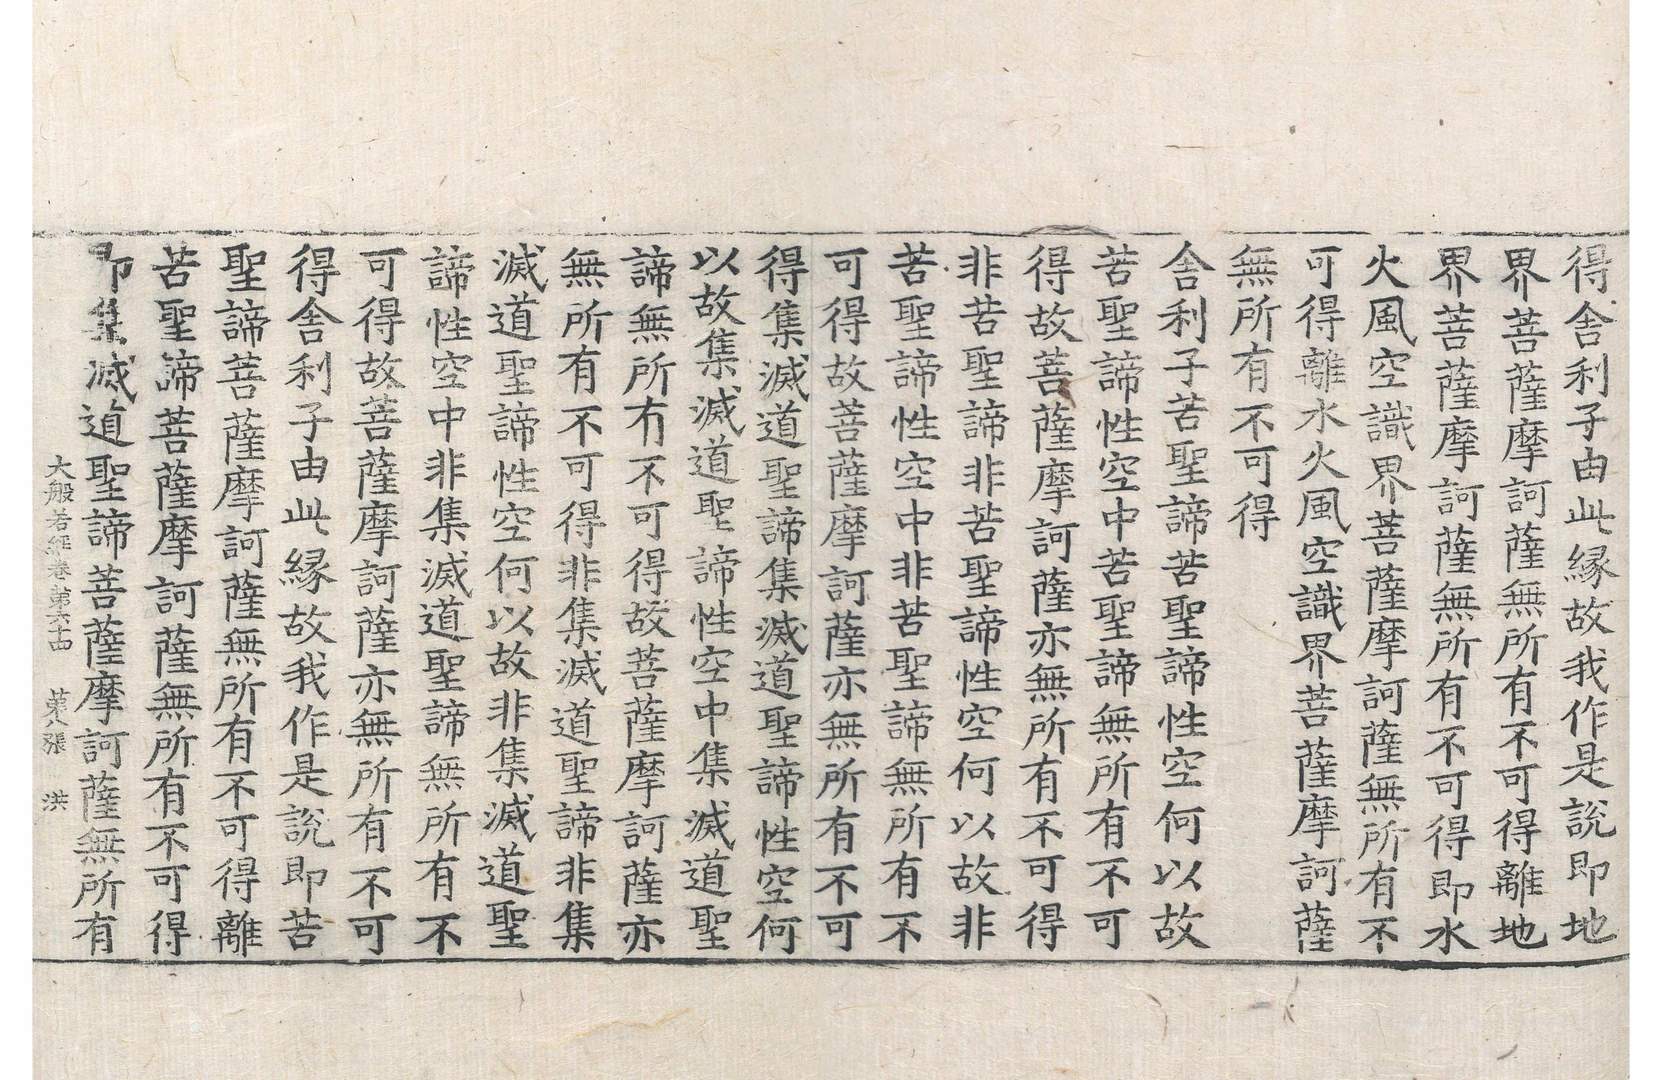 得舍利子由此緣故我作是說即地
界菩薩摩訶薩無所有不可得離地
界菩薩摩訶薩無所有不可得即水
火風空識界菩薩摩訶薩無所有不
可得離水火風空識界菩薩摩訶薩
無所有不可得
舍利子苦聖諦苦聖諦性空何以故
苦聖諦性空中苦聖諦無所有不可
得故菩薩摩訶薩亦無所有不可得
非苦聖諦非苦聖諦性空何以故非
苦聖諦性空中非苦聖諦無所有不
可得故菩薩摩訶薩亦無所有不可
得集滅道聖諦集滅道聖諦性空何
以故集滅道聖諦性空中集滅道聖
諦無所有不可得故菩薩摩訶薩亦
無所有不可得非集滅道聖諦非集
滅道聖諦性空何以故非集滅道聖
諦性空中非集滅道聖諦無所有不
可得故菩薩摩訶薩亦無所有不可
得舍利子由此緣故我作是說即苦
聖諦菩薩摩訶薩無所有不可得離
苦聖諦菩薩摩訶薩無所有不可得
即集滅道聖諦菩薩摩訶薩無所有
大般若經卷第六十四 第八張 洪